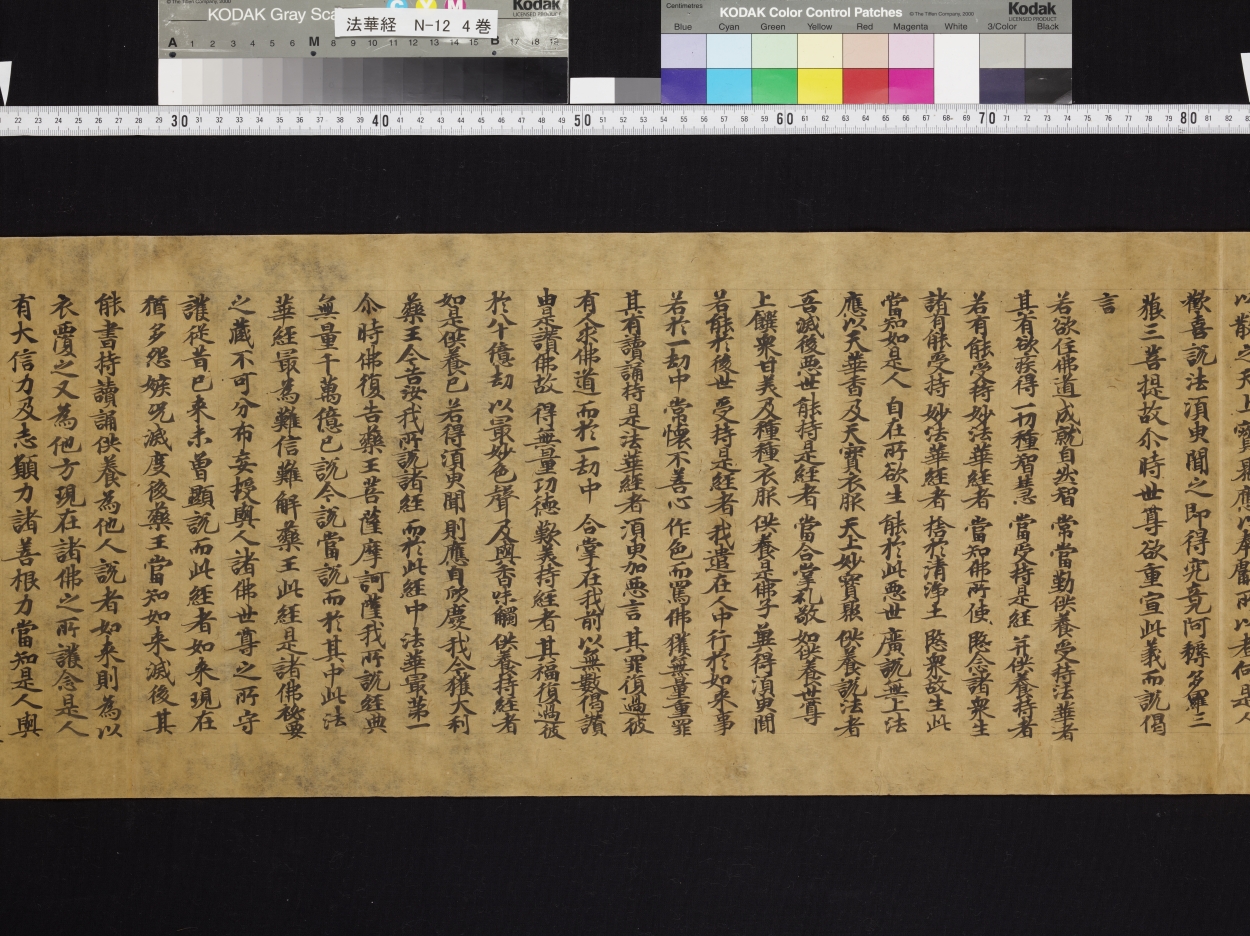 © The Tiffen Company, 2000
KODAK Gray Sca
Kodak
LICENSED PRODUCT
法華経 N-12 4巻
C Y M
A 1 2 3 4 5 6 M 8 9 10 11 12 13 14 15 B 17 18 19
Centimetres
KODAK Color Control Patches
© The Tiffen Company, 2000
Kodak
LICENSED PRODUCT
Blue Cyan Green Yellow Red Magenta White 3/Color Black
22 23 24 25 26 27 28 29 30 31 32 33 34 35 36 37 38 39 40 41 42 43 44 45 46 47 48 49 50 51 52 53 54 55 56 57 58 59 60 61 62 63 64 65 66 67 68 69 70 71 72 73 74 75 76 77 78 79 80 81 82
以散之天上寶聚應以奉獻所以者何是人
歡喜說法湏臾聞之即得究竟阿耨多羅三
藐三菩提故尒時世尊欲重宣此義而說偈
言
若欲住佛道成就自然智 常當勤供養受持法華者
其有欲疾得一切種智慧 當受持是經 并供養持者
若有能受持妙法華經者 當知佛所使 愍念諸衆生
諸有能受持 妙法華經者 捨於清淨土 愍衆故生此
當知如是人 自在所欲生 能於此惡世 廣說無上法
應以天華香及天寶衣服 天上妙寶聚 供養說法者
吾滅後惡世 能持是經者 當合掌礼敬 如供養世尊
上饌衆甘美及種種衣服 供養是佛子 兾得湏臾聞
若能於後世 受持是經者 我遣在人中行於如來事
若於一劫中 常懷不善心 作色而罵佛 獲無量重罪
其有讀誦持是法華經者 湏臾加惡言 其罪復過彼
有人求佛道 而於一劫中 合掌在我前 以無數偈讚
由是讚佛故 得無量功德 歎美持經者 其福復過彼
於八十億劫 以最妙色聲 及與香味觸 供養持經者
如是供養已 若得湏臾聞 則應自欣慶 我今獲大利
藥王今告汝 我所說諸經 而於此經中 法華最第一
尒時佛復告藥王菩薩摩訶薩我所說經典
無量千萬億已說今說當說而於其中此法
華經最為難信難解藥王此經是諸佛秘要
之藏不可分布妄授與人諸佛世尊之所守
護從昔已來未曾顯說而此經者如來現在
猶多怨嫉況滅度後藥王當知如來滅後其
能書持讀誦供養為他人說者如來則為以
衣覆之又為他方現在諸佛之所護念是人
有大信力及志願力諸善根力當知是人與